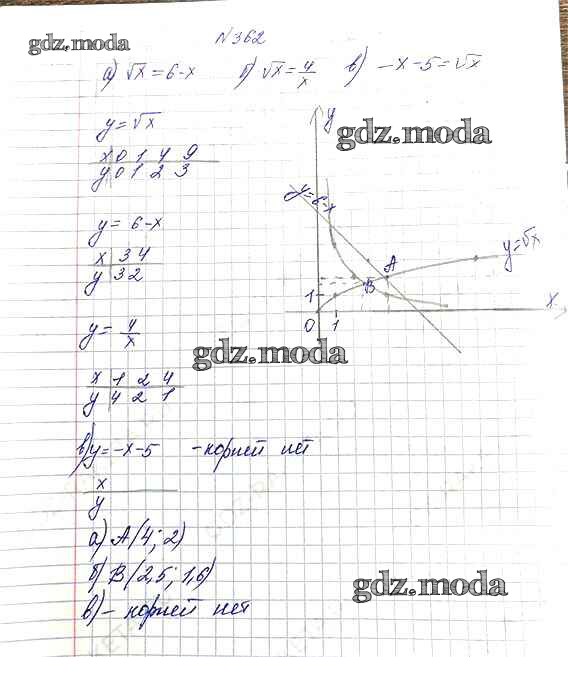 №362
gdz.moda
а) √x = 6-x   б) √x = 4/x   в) -x-5=√x
y=√x
x 0 1 4 9
y 0 1 2 3
y = 6-x
x 3 4
y 3 2
y = 4/x
x 1 2 4
y 4 2 1
в) y = -x-5   - корней нет
x
y
а) A(4; 2)
б) B(2,5; 1,6)
в) - корней нет
gdz.moda
y
y=6-x
y=√x
A
B
x
1
0 1
gdz.moda
gdz.moda